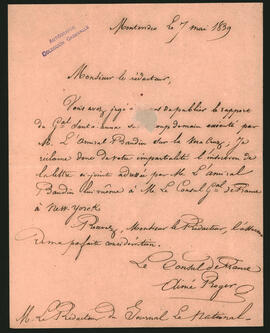 AUTOGRAFOS
COLECCION CASAVALLE
Montevideo Le 7 mai 1839
Monsieur le rédacteur,
Vous avez jugé de publier le rapport
du Gal Santa-anna coup de main exécuté par
Mr. L'Amiral Baudin sur la Vera Cruz; Je
réclame donc de votre impartialité l'insertion de
la lettre ci jointe adressée par Mr L'Amiral
Baudin lui même à Mr Le Consul Gal de France
à New-Yorck
Recevez, Monsieur le Rédacteur, l'assurance
de ma parfaite considération.
Le Consul de France
Aimé Roger
Mr Le Rédacteur du Journal Le National